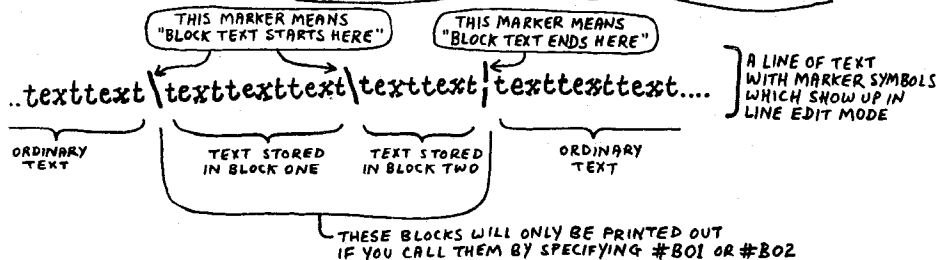 THIS MARKER MEANS
"BLOCK TEXT STARTS HERE"
THIS MARKER MEANS
"BLOCK TEXT ENDS HERE"
..texttext\texttexttext\texttext¦texttexttext....
A LINE OF TEXT
WITH MARKER SYMBOLS
WHICH SHOW UP IN
LINE EDIT MODE
ORDINARY
TEXT
TEXT STORED
IN BLOCK ONE
TEXT STORED
IN BLOCK TWO
ORDINARY
TEXT
THESE BLOCKS WILL ONLY BE PRINTED OUT
IF YOU CALL THEM BY SPECIFYING #B01 OR #B02